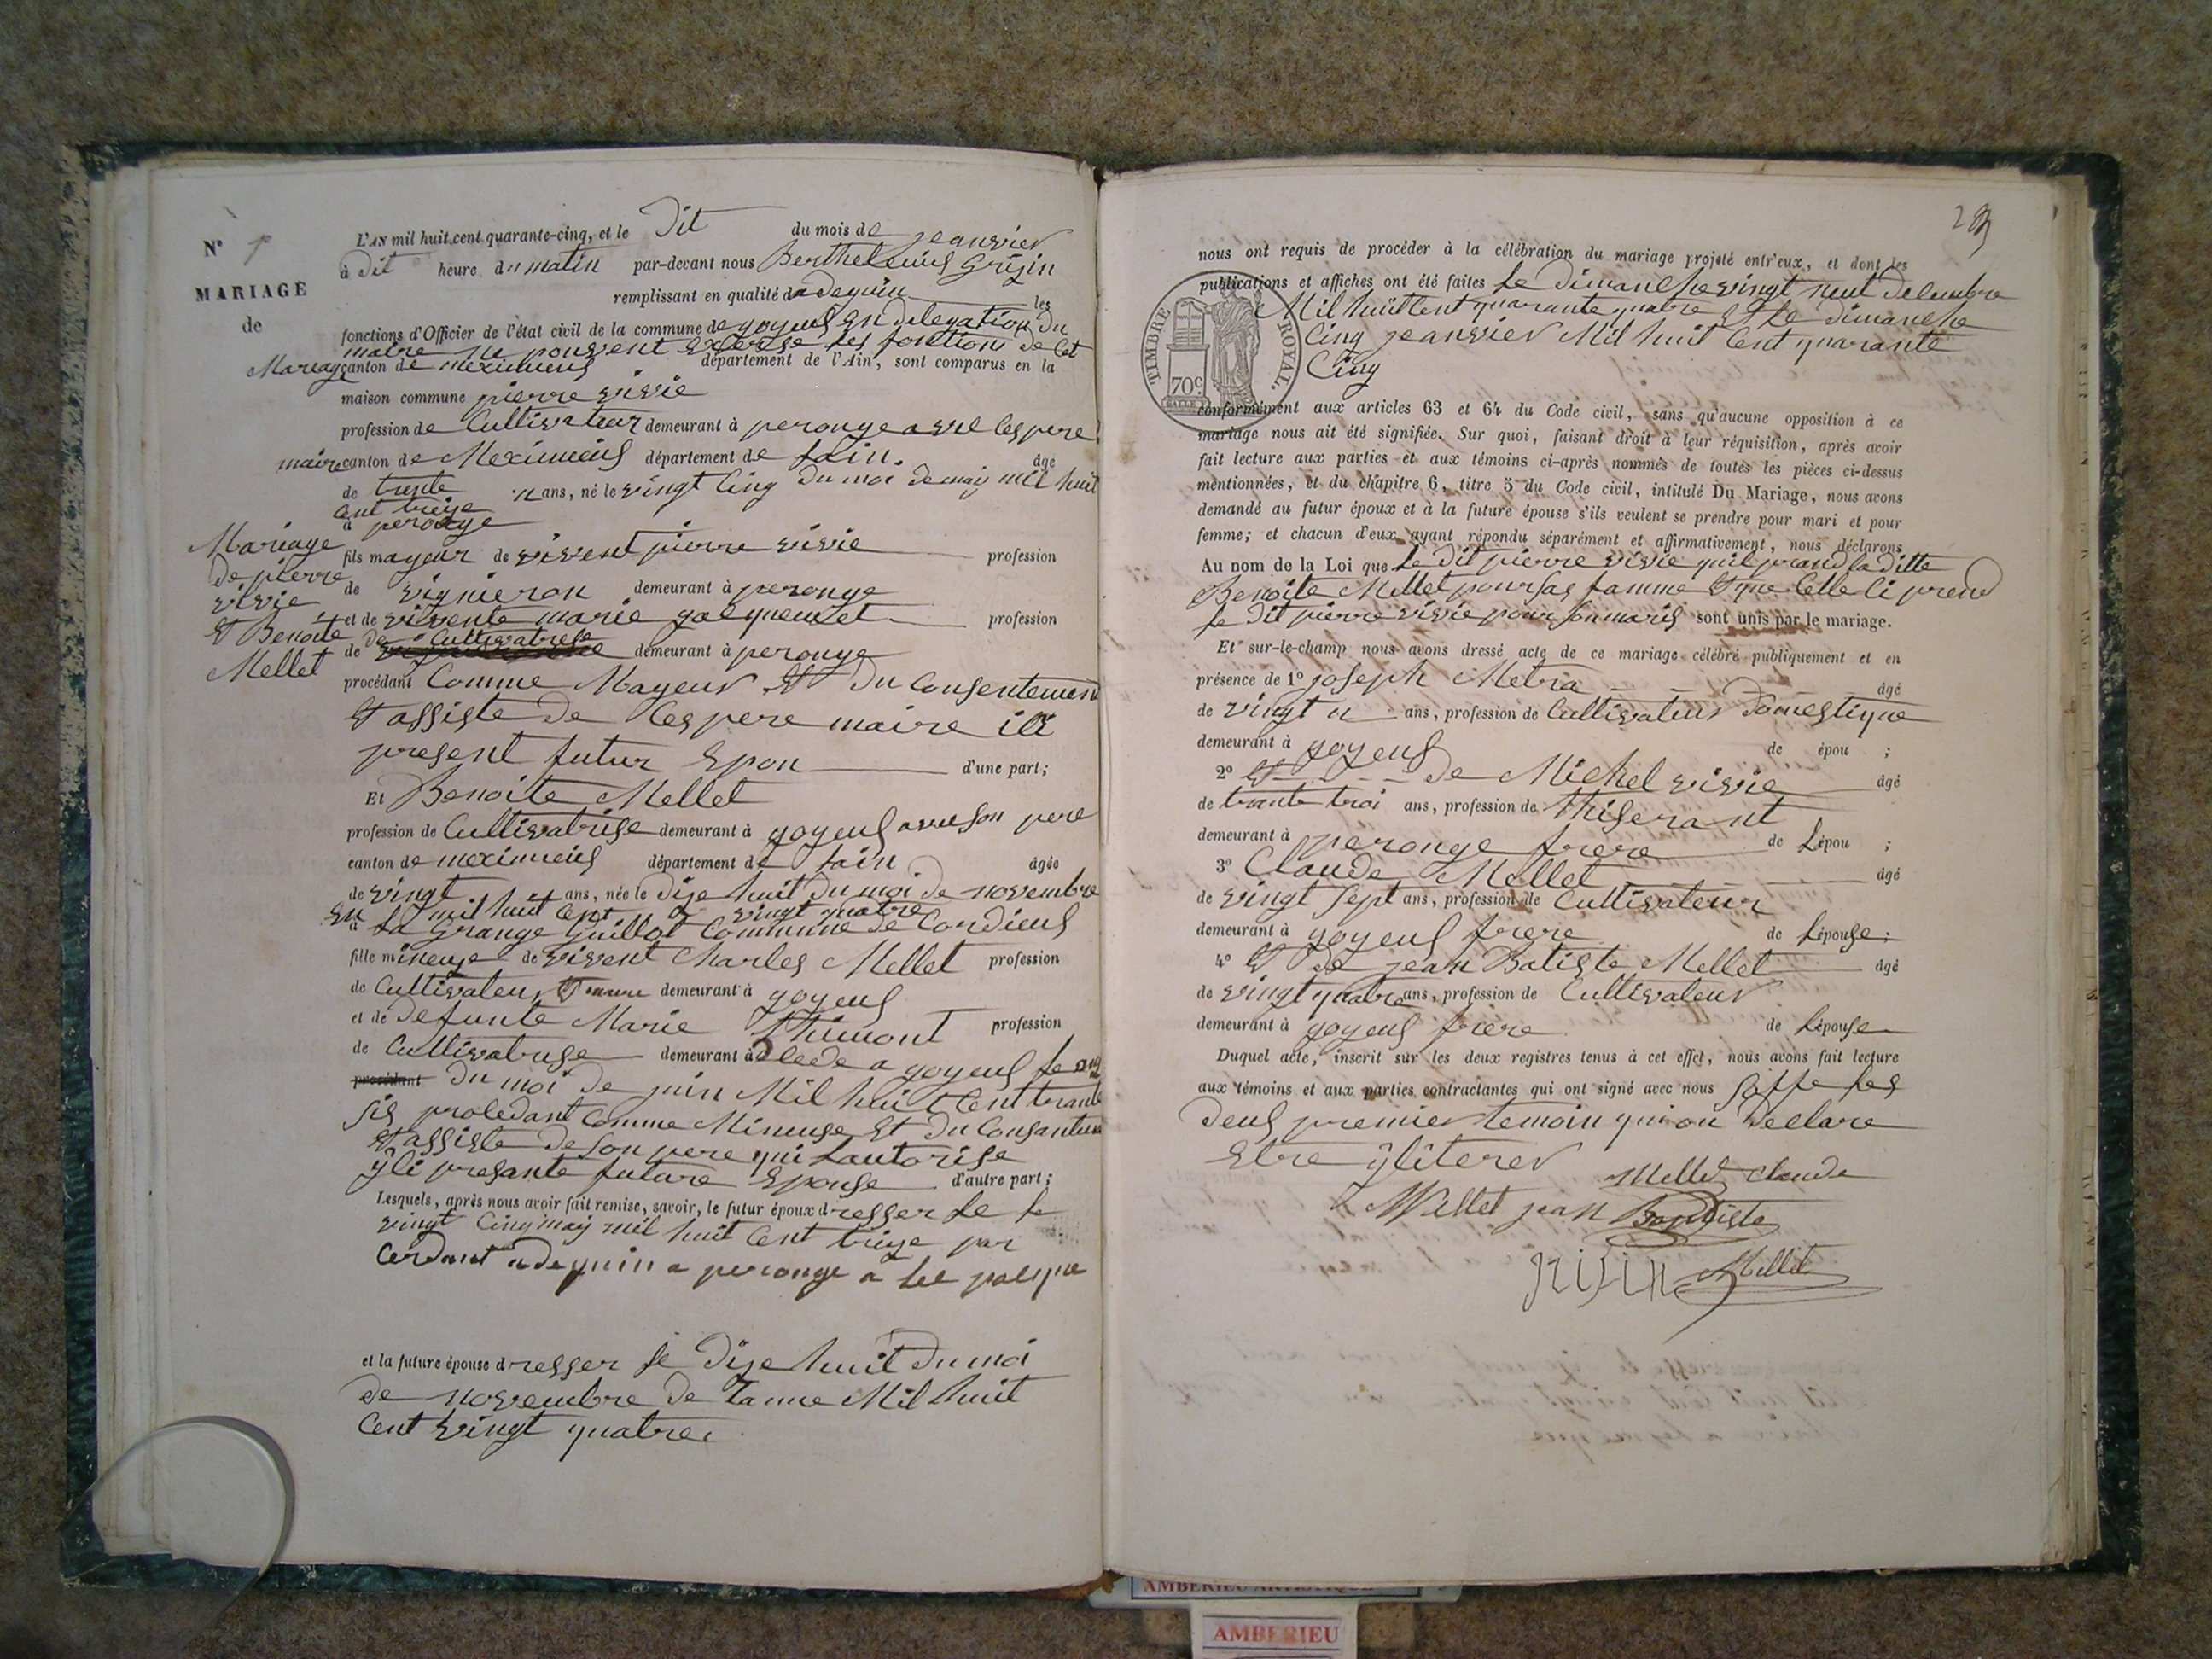 N° 1
MARIAGE
de
L'AN mil huit cent quarante-cinq, et le Dit du mois de jeanvier
à Dit heure du matin par-devant nous Berthelemis Grizin
remplissant en qualité d adequin les
fonctions d'Officier de l'état civil de la commune de joyeus En delegation du
maire ne pouvent Exerse les fonction de Cet
Mareage canton de meximieus département de l'Ain, sont comparus en la
maison commune pierre vivie
profession de Cultivateur demeurant à perouge avec Ces pere
maire canton de Meximieus département de Lain. âgé
de trente un ans, né le vingt Cinq du moi de may mil huit
Cent treize
à perouge
Mariage
de pierre
vivie
Et Benoite
Mellet
fils mayeur de vivent pierre vivie profession
de vignieron demeurant à perouge
et de vivente marie jacquemet profession
de Cultivatrise
de demeurant à perouge
procédant Comme Mayeur Et du Consentement
Et assiste de Ces pere maire ici
present futur Epou d'une part;
Et Benoite Mellet
profession de Cultivatrise demeurant à joyeus avec son pere
canton de meximieus département de Lain âgée
de vingt ans, née le dize huit du moi de novembre
En mil huit Cent vingt quatre
à La Grange Guillot Commune de Cordieus
fille mineuze de vivent Charles Mellet profession
de Cultivateur demeurant à joyeus
et de defunte Marie Thimont profession
de Cultivatrise demeurant à decede a joyeus le
procédant du moi de juin Mil huit Cent trante
sis procedant Comme Mineuse Et du Consantem
Et assiste de son pere qui Lautorise
yci presante future Epouse d'autre part;
Lesquels, après nous avoir fait remise, savoir, le futur époux dresser Le le
vingt Cinq may mil huit Cent treize par
Cerdant adequin a perouge a
et la future épouse dresser le Dize huit du moi
de novembre de Lanne Mil huit
Cent vingt quatre
nous ont requis de procéder à la célébration du mariage projeté entr'eux, et dont les
publications et affiches ont été faites Le dimanche vingt neuf decembre
Mil huitCent quarante quatre Et Le dimanche
Cinq jeanvier Mil huit Cent quarante
Cinq
TIMBRE ROYAL.
70c
conformément aux articles 63 et 64 du Code civil, sans qu'aucune opposition à ce
mariage nous ait été signifiée. Sur quoi, faisant droit à leur réquisition, après avoir
fait lecture aux parties et aux témoins ci-après nommés de toutes les pièces ci-dessus
mentionnées, et du chapitre 6, titre 5 du Code civil, intitulé Du Mariage, nous avons
demandé au futur époux et à la future épouse s'ils veulent se prendre pour mari et pour
femme; et chacun d'eux ayant répondu séparément et affirmativement, nous déclarons
Au nom de la Loi que Le dit pierre vivie quil prand la ditte
Benoite Mellet pour sas famme Et que Celle Ci prend
Le dit pierre vivie pour son maris sont unis par le mariage.
Et sur-le-champ nous avons dressé acte de ce mariage célébré publiquement et en
présence de 1° joseph Metra âgé
de vingt un ans, profession de Cultivateur domestique
demeurant à joyeus de épou ;
2° Et de Michel vivie âgé
de trante troi ans, profession de thiserant
demeurant à perouge frere de Lépou ;
3° Claude Mellet âgé
de vingt sept ans, profession de Cultivateur
demeurant à joyeus frere de Lépouse;
4° Et de jean Batiste Mellet âgé
de vingt quatre ans, profession de Cultivateur
demeurant à joyeus frere de Lépouse
Duquel acte, inscrit sur les deux registres tenus à cet effet, nous avons fait lecture
aux témoins et aux parties contractantes qui ont signé avec nous Soffe Les
deus premier temoin qui on declare
Etre yliterer
Mellet Claude
Mellet jean Baptiste
Grisin Mellet
AMBERIEU